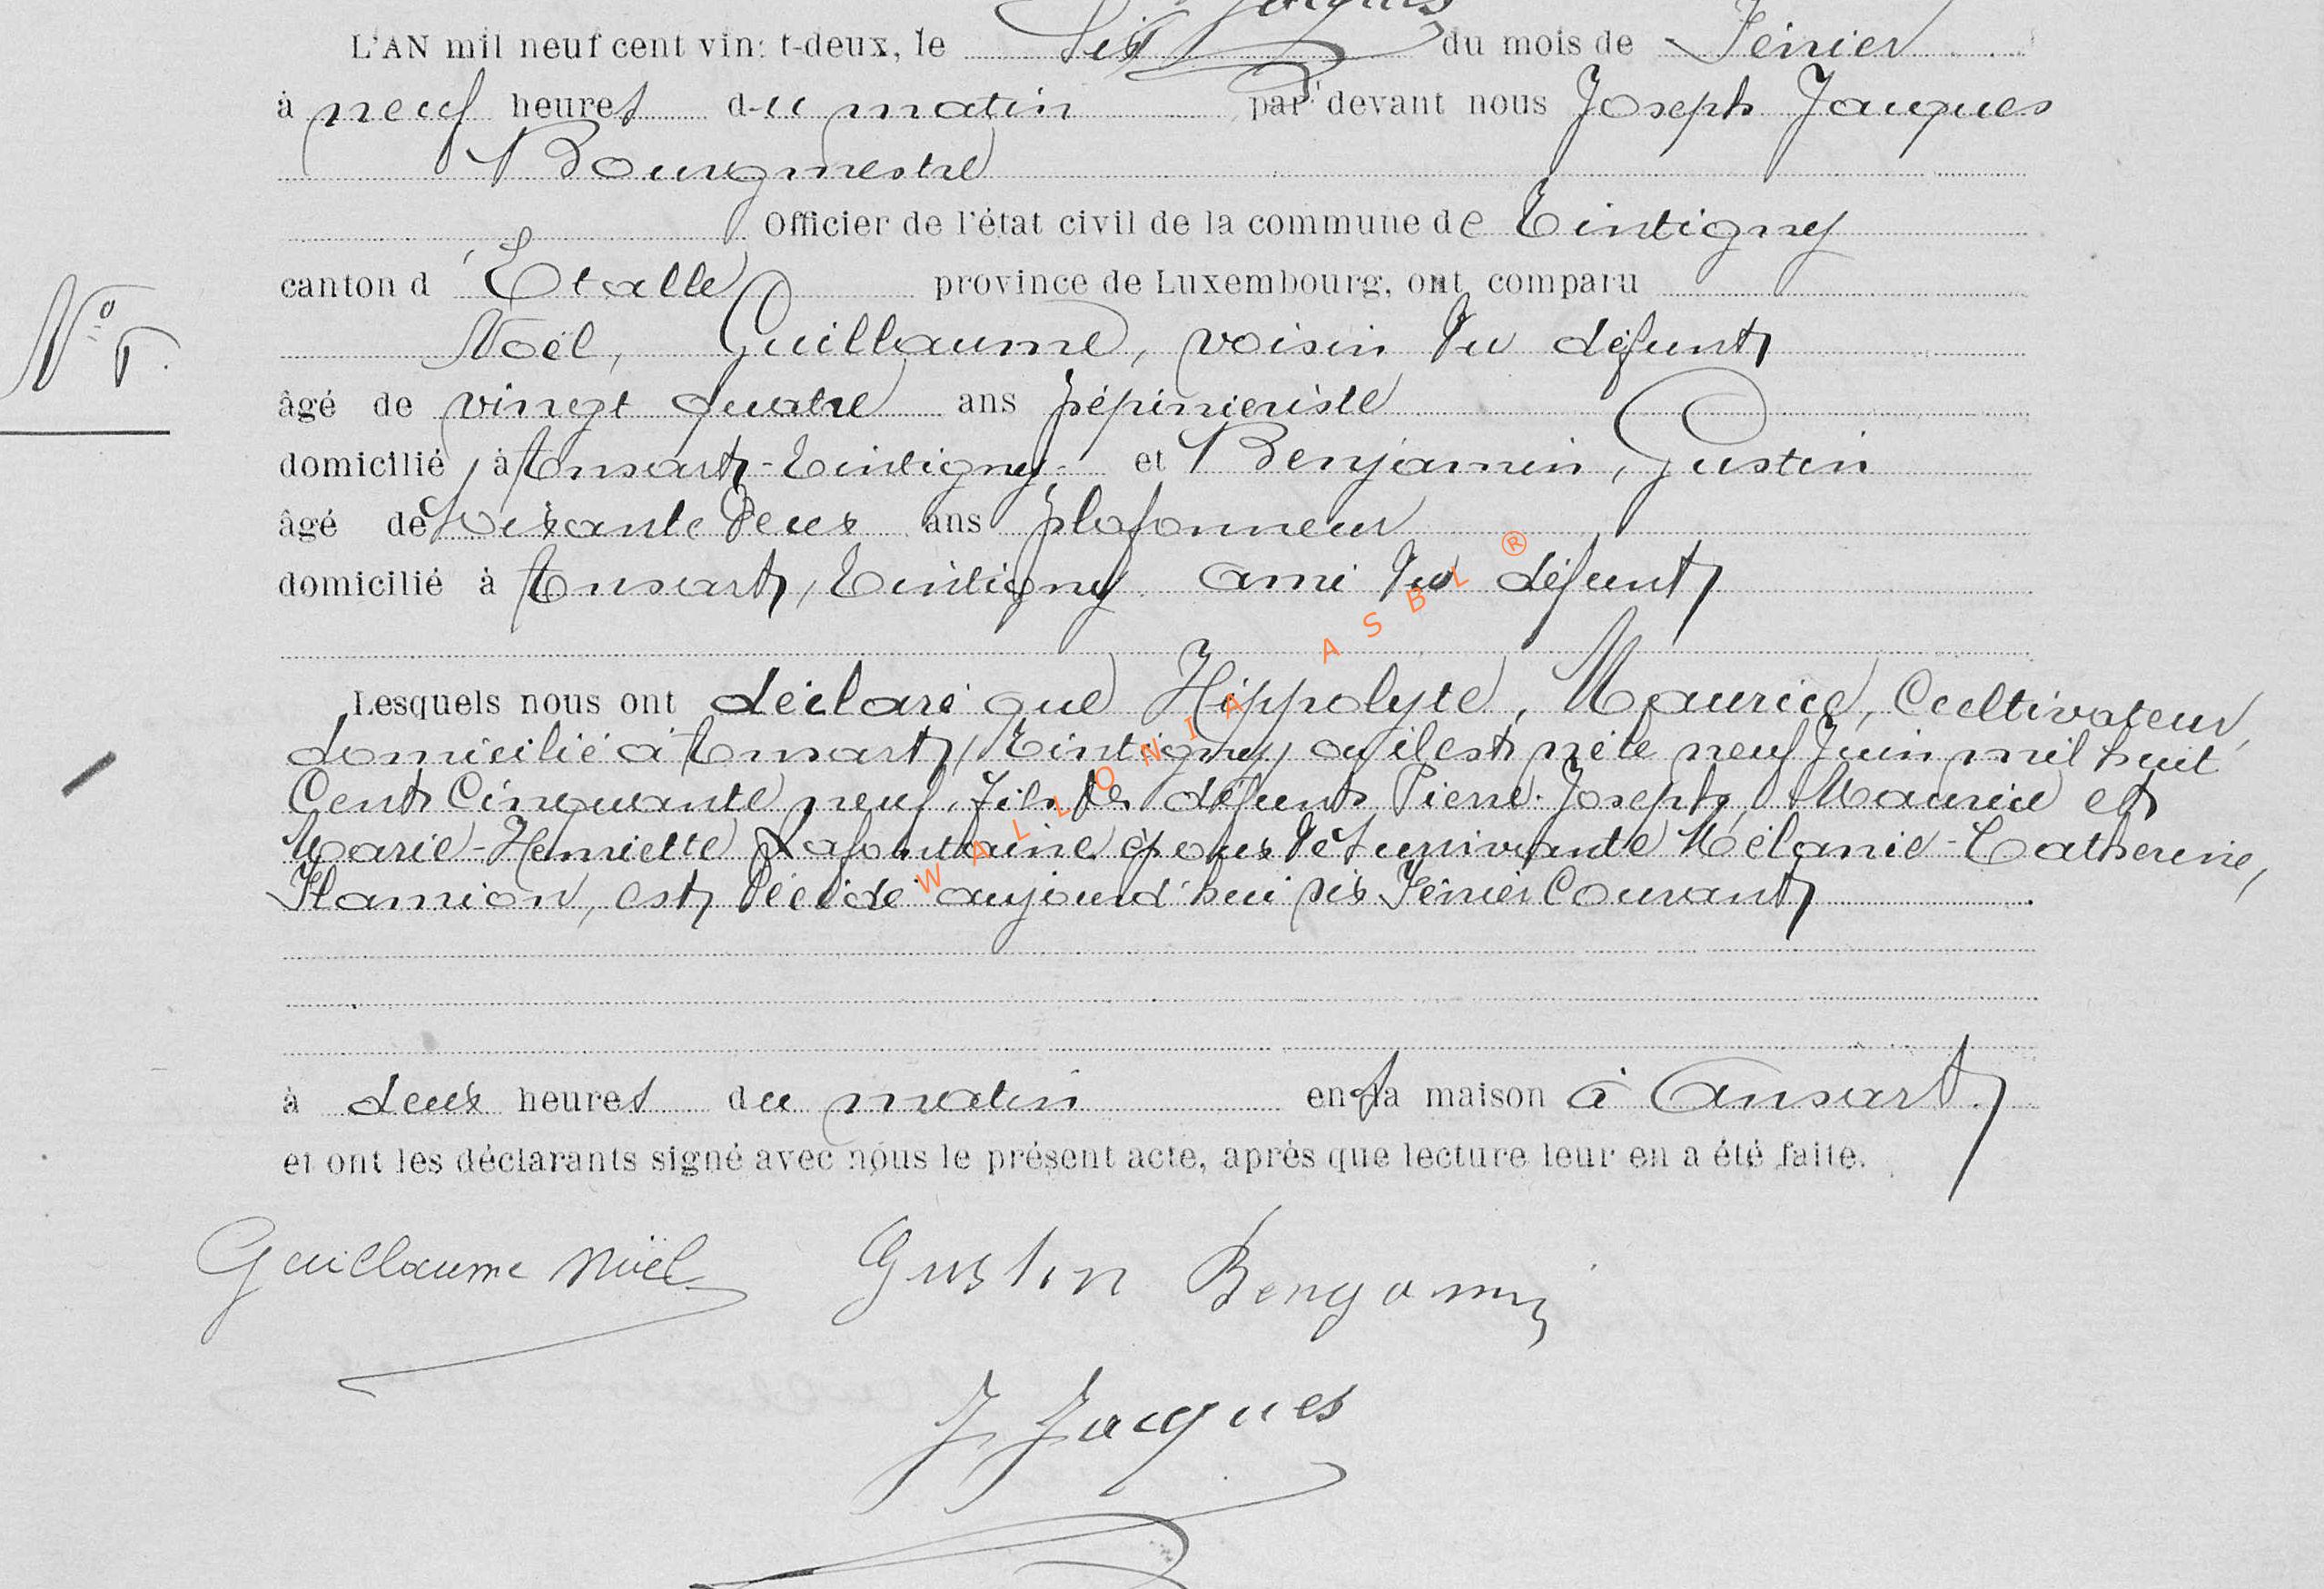 Jacques
L'AN mil neuf cent vingt-deux, le six du mois de Février
à neuf heures du matin par devant nous Joseph Jacques
Bourgmestre
Officier de l'état civil de la commune de Tintigny
canton d'Etalle province de Luxembourg, ont comparu
Noël, Guillaume, voisin du défunt
âgé de vingt quatre ans pépinieriste
domicilié à Ansart-Tintigny et Benjamin, Gustin
âgé de soixante deux ans plafonneur
domicilié à Ansart, Tintigny ami du défunt
Lesquels nous ont déclaré que Hippolyte, Maurice, Cultivateur,
domicilié à Ansart, Tintigny où il est né le neuf Juin mil huit
Cent Cinquante neuf, fils de défunts Pierre-Joseph, Maurice et
Marie-Henriette Lafontaine époux de survivante Mélanie-Catherine,
Flamion, est décédé aujourd'hui six Février Courant
à deux heures du matin en sa maison à Ansart.
et ont les déclarants signé avec nous le présent acte, après que lecture leur en a été faite.
Guillaume Noël Gustin Benjamin
J. Jacques
WALLONIA ASBL ®